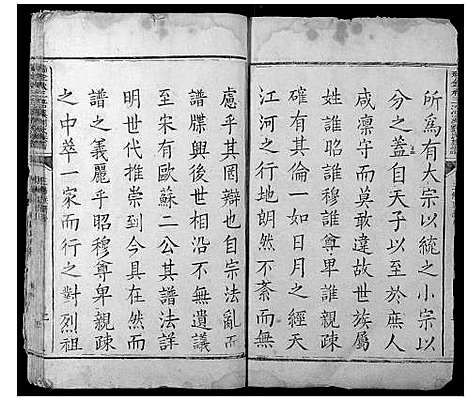 所爲有大宗以統之小宗以
分之蓋自天子以至於庶人
咸凛守而莫敢違故世族屬
姓誰昭誰穆誰尊卑誰親疎
確有其倫一如日月之經天
江河之行地朗然不紊而一
慮乎其罔辯也自宗法亂而
譜牒興後世相沿不無遺議
至宋有歐蘇二公其譜法詳
明世代推崇到今具在然而
譜之義麗乎昭穆尊卑親疎
之中萃一家而行之對烈祖